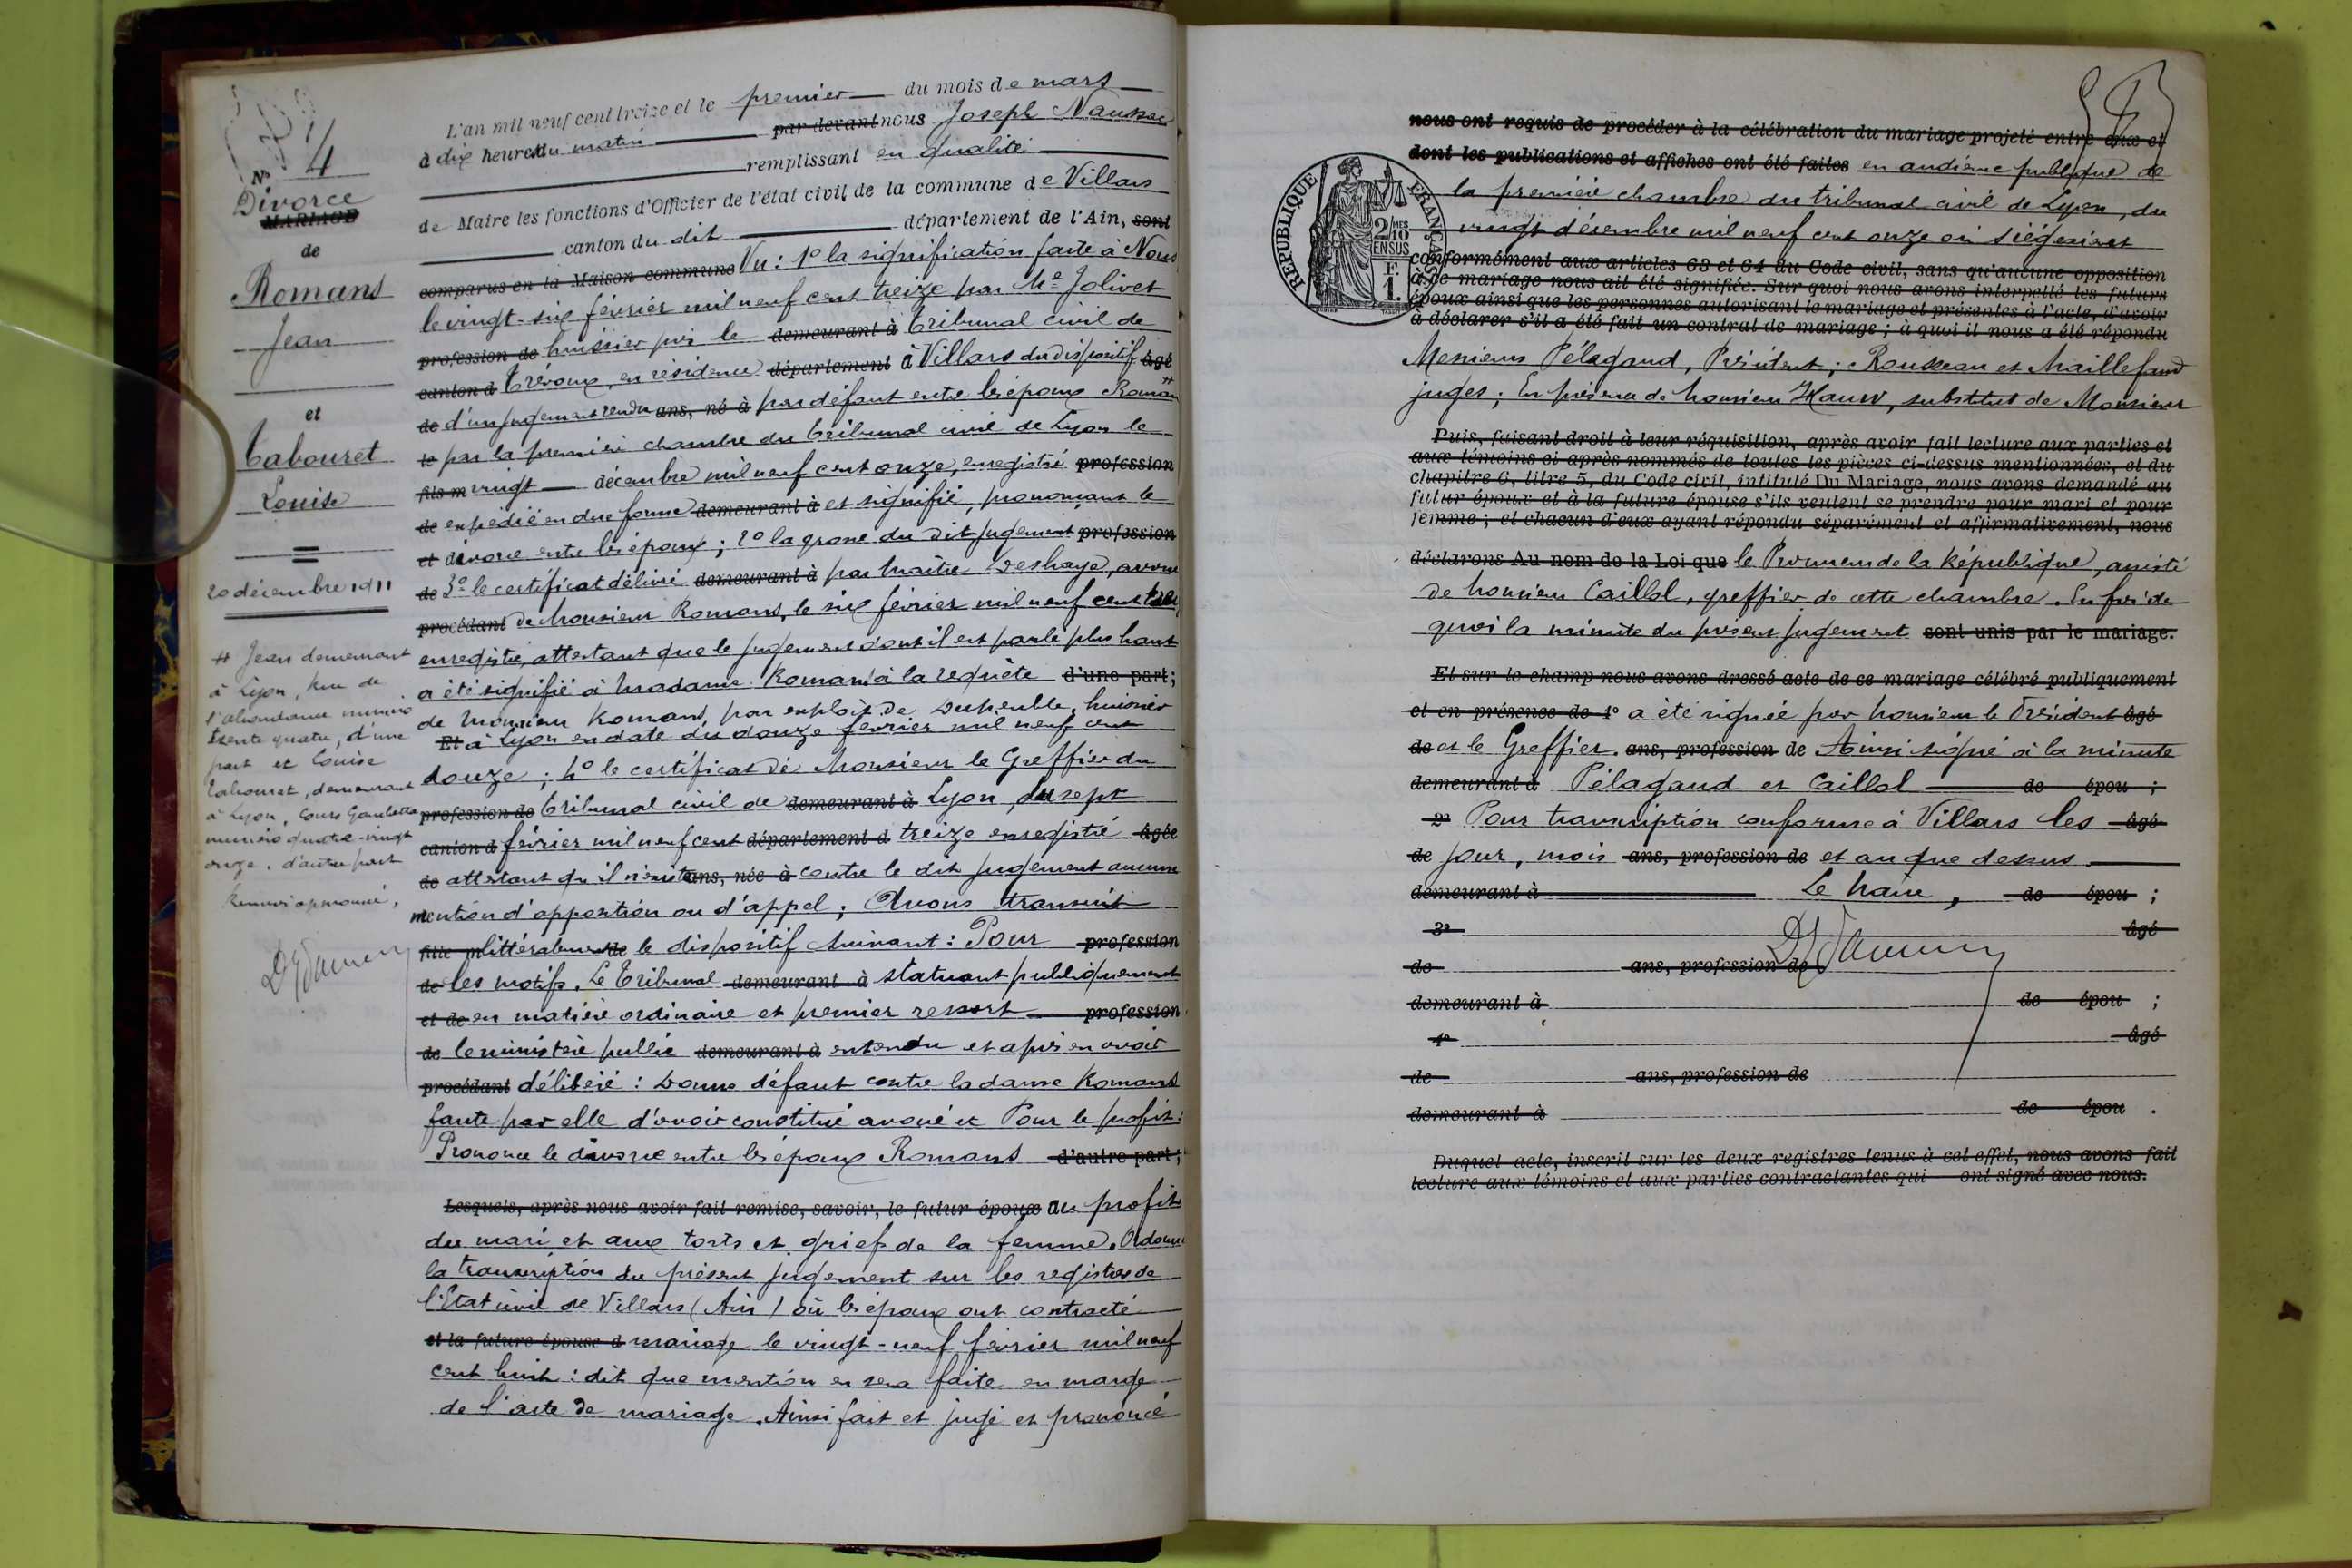 N° 4
Divorce
MARIAGE
de
Romans
Jean
et
Tabouret
Louise
20 décembre 1911
# Jean demeurant
à Lyon, Rue de
l'abondance numéro
trente quatre, d'une
part et Louise
Tabouret, demeurant
à Lyon, Cours Gambetta
numéro quatre-vingt
onze, d'autre part
Renvoi approuvé,
L'an mil neuf cent treize et le premier du mois de mars
à dix heures du matin par devant nous Joseph Naussac
remplissant en qualité
de Maire les fonctions d'Officier de l'état civil de la commune de Villars
canton du dit département de l'Ain, sont
comparus en la Maison commune Vu : 1° la signification faite à Nous
le vingt-six février mil neuf cent treize par Me Jolivet
profession de huissier près le demeurant à Tribunal civil de
canton d Trévoux, en résidence département à Villars du dispositif âgé
de d'un jugement rendu ans, né à par défaut entre les époux Romans #
le par la première chambre du Tribunal civil de Lyon le
fils m vingt décembre mil neuf cent onze, enregistré profession
de expédié en due forme demeurant à et signifié, prononçant le
et divorce entre les époux ; 2° la grosse du dit jugement profession
de 3° le certificat délivré demeurant à par Maître Deshaye, avoué
procédant de Monsieur Romans, le six février mil neuf cent treize
enregistré, attestant que le jugement dont il est parlé plus haut
a été signifié à Madame Romans à la requête d'une part ;
de Monsieur Romans, par exploit de huissier
Et à Lyon en date du douze février mil neuf cent
douze ; 4° le certificat de Monsieur le Greffier du
profession de Tribunal civil de demeurant à Lyon du sept
canton d février mil neuf cent département d treize enregistré âgée
de attestant qu'il n'existe ans, née à contre le dit jugement aucune
mention d'opposition ou d'appel ; Avons transcrit
fille m littéralement de le dispositif suivant : Pour profession
de les motifs. Le Tribunal demeurant à statuant publiquement
et de en matière ordinaire et premier ressort profession
de le ministère public demeurant à entendu et après en avoir
procédant délibéré : Donne défaut contre la dame Romans
faute par elle d'avoir constitué avoué et Pour le profit :
Prononce le divorce entre les époux Romans d'autre part ;
Lesquels, après nous avoir fait remise, savoir, le futur époux au profit
du mari et aux torts et griefs de la femme. Ordonne
la transcription du présent jugement sur les registres de
l'Etat civil de Villars (Ain) où les époux ont contracté
et la future épouse d mariage le vingt-neuf février mil neuf
cent huit : dit que mention en sera faite en marge
de l'acte de mariage. Ainsi fait et jugé et prononcé
nous ont requis de procéder à la célébration du mariage projeté entre eux et
dont les publications et affiches ont été faites en audience publique de
la première chambre du tribunal civil de Lyon, du
vingt décembre mil neuf cent onze où siégeaient
RÉPUBLIQUE FRANÇAISE
2/10 EN SUS
F.
1.
conformément aux articles 63 et 64 du Code civil, sans qu'aucune opposition
à ce mariage nous ait été signifiée. Sur quoi nous avons interpellé les futurs
époux ainsi que les personnes autorisant le mariage et présentes à l'acte, d'avoir
à déclarer s'il a été fait un contrat de mariage ; à quoi il nous a été répondu
Messieurs Pélagaud, Président ; Rousseau et Maillefaud
juges ; En présence de Monsieur Hauw, substitut de Monsieur
Puis, faisant droit à leur réquisition, après avoir fait lecture aux parties et
aux témoins ci-après nommés de toutes les pièces ci-dessus mentionnées, et du
chapitre 6, titre 5, du Code civil, intitulé Du Mariage, nous avons demandé au
futur époux et à la future épouse s'ils veulent se prendre pour mari et pour
femme ; et chacun d'eux ayant répondu séparément et affirmativement, nous
déclarons Au nom de la Loi que le Procureur de la République, assisté
de Monsieur Caillol, greffier de cette chambre. En foi de
quoi la minute du présent jugement sont unis par le mariage.
Et sur le champ nous avons dressé acte de ce mariage célébré publiquement
et en présence de 1° a été signée par Monsieur le Président âgé
de et le Greffier. ans, profession de Ainsi signé à la minute
demeurant à Pélagaud et Caillol de épou ;
2° Pour transcription conforme à Villars les âgé
de jour, mois ans, profession de et an que dessus.
demeurant à Le Maire, de épou ;
3° âgé
de ans, profession de
demeurant à de épou ;
4° âgé
de ans, profession de
demeurant à de épou .
Duquel acte, inscrit sur les deux registres tenus à cet effet, nous avons fait
lecture aux témoins et aux parties contractantes qui ont signé avec nous.